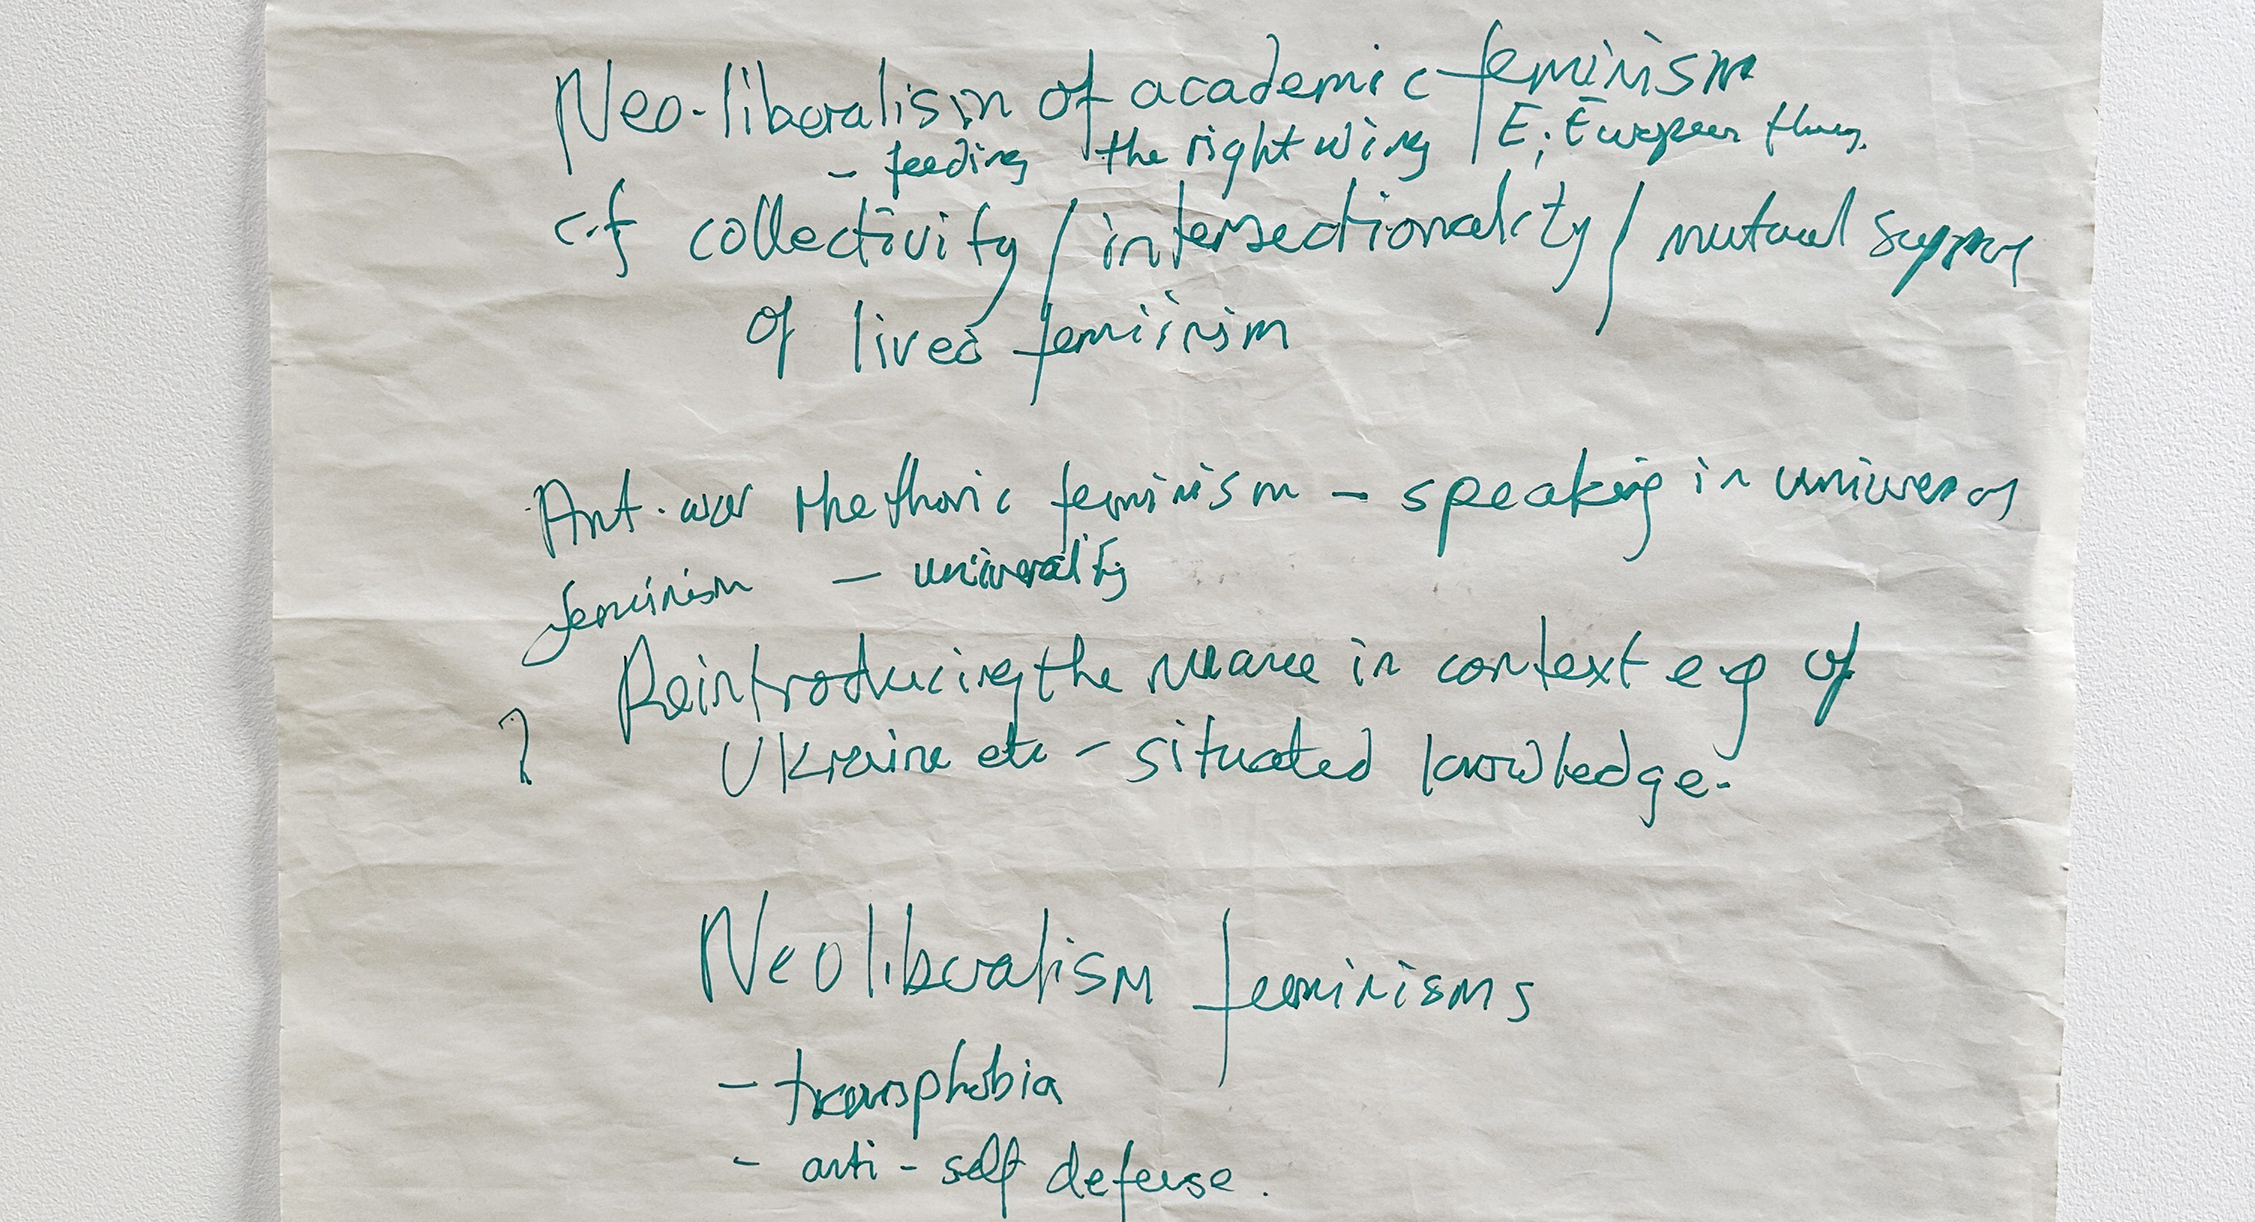 Neo-liberalism of academic feminism
- feeding the right wing / E; European
c.f collectivity / intersectionality / mutual support
of lived feminism
Ant. war rhethoric feminism - speaking in universal
feminism - universality
Reintroducing the nuance in context eg of
? Ukraine etc - situated knowledge.
Neoliberalism feminisms
- transphobia
- anti-self defense.